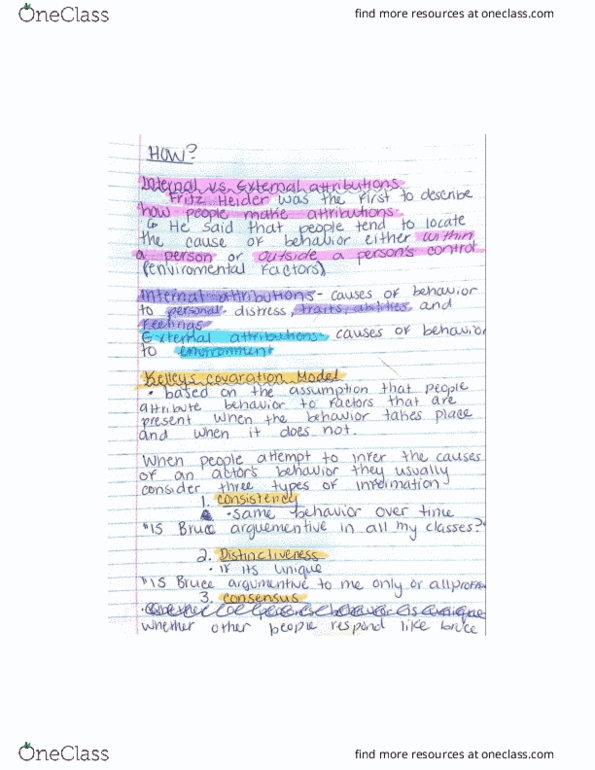 OneClass
find more resources at oneclass.com
HOW?
Internal vs. External attributions
Fritz Heider was the first to describe
how people make attributions.
He said that people tend to locate
the cause of behavior either within
a person or outside a person's control
(enviromental factors)
Internal attributions - causes of behavior
to personal distress, traits, abilities and
feelings
External attributions causes of behavior
to environment
Kelleys covaration Model
• based on the assumption that people
attribute behavior to factors that are
present when the behavior takes place
and when it does not.
When people attempt to infer the causes
of an actors behavior they usually
consider three types of information
1. consistency
• same behavior over time
"is Bruce arguementive in all my classes?"
2. Distinctiveness
• if its unique
"is Bruce argumentive to me only or all
3. consensus
whether other people respond like bruce
OneClass
find more resources at oneclass.com